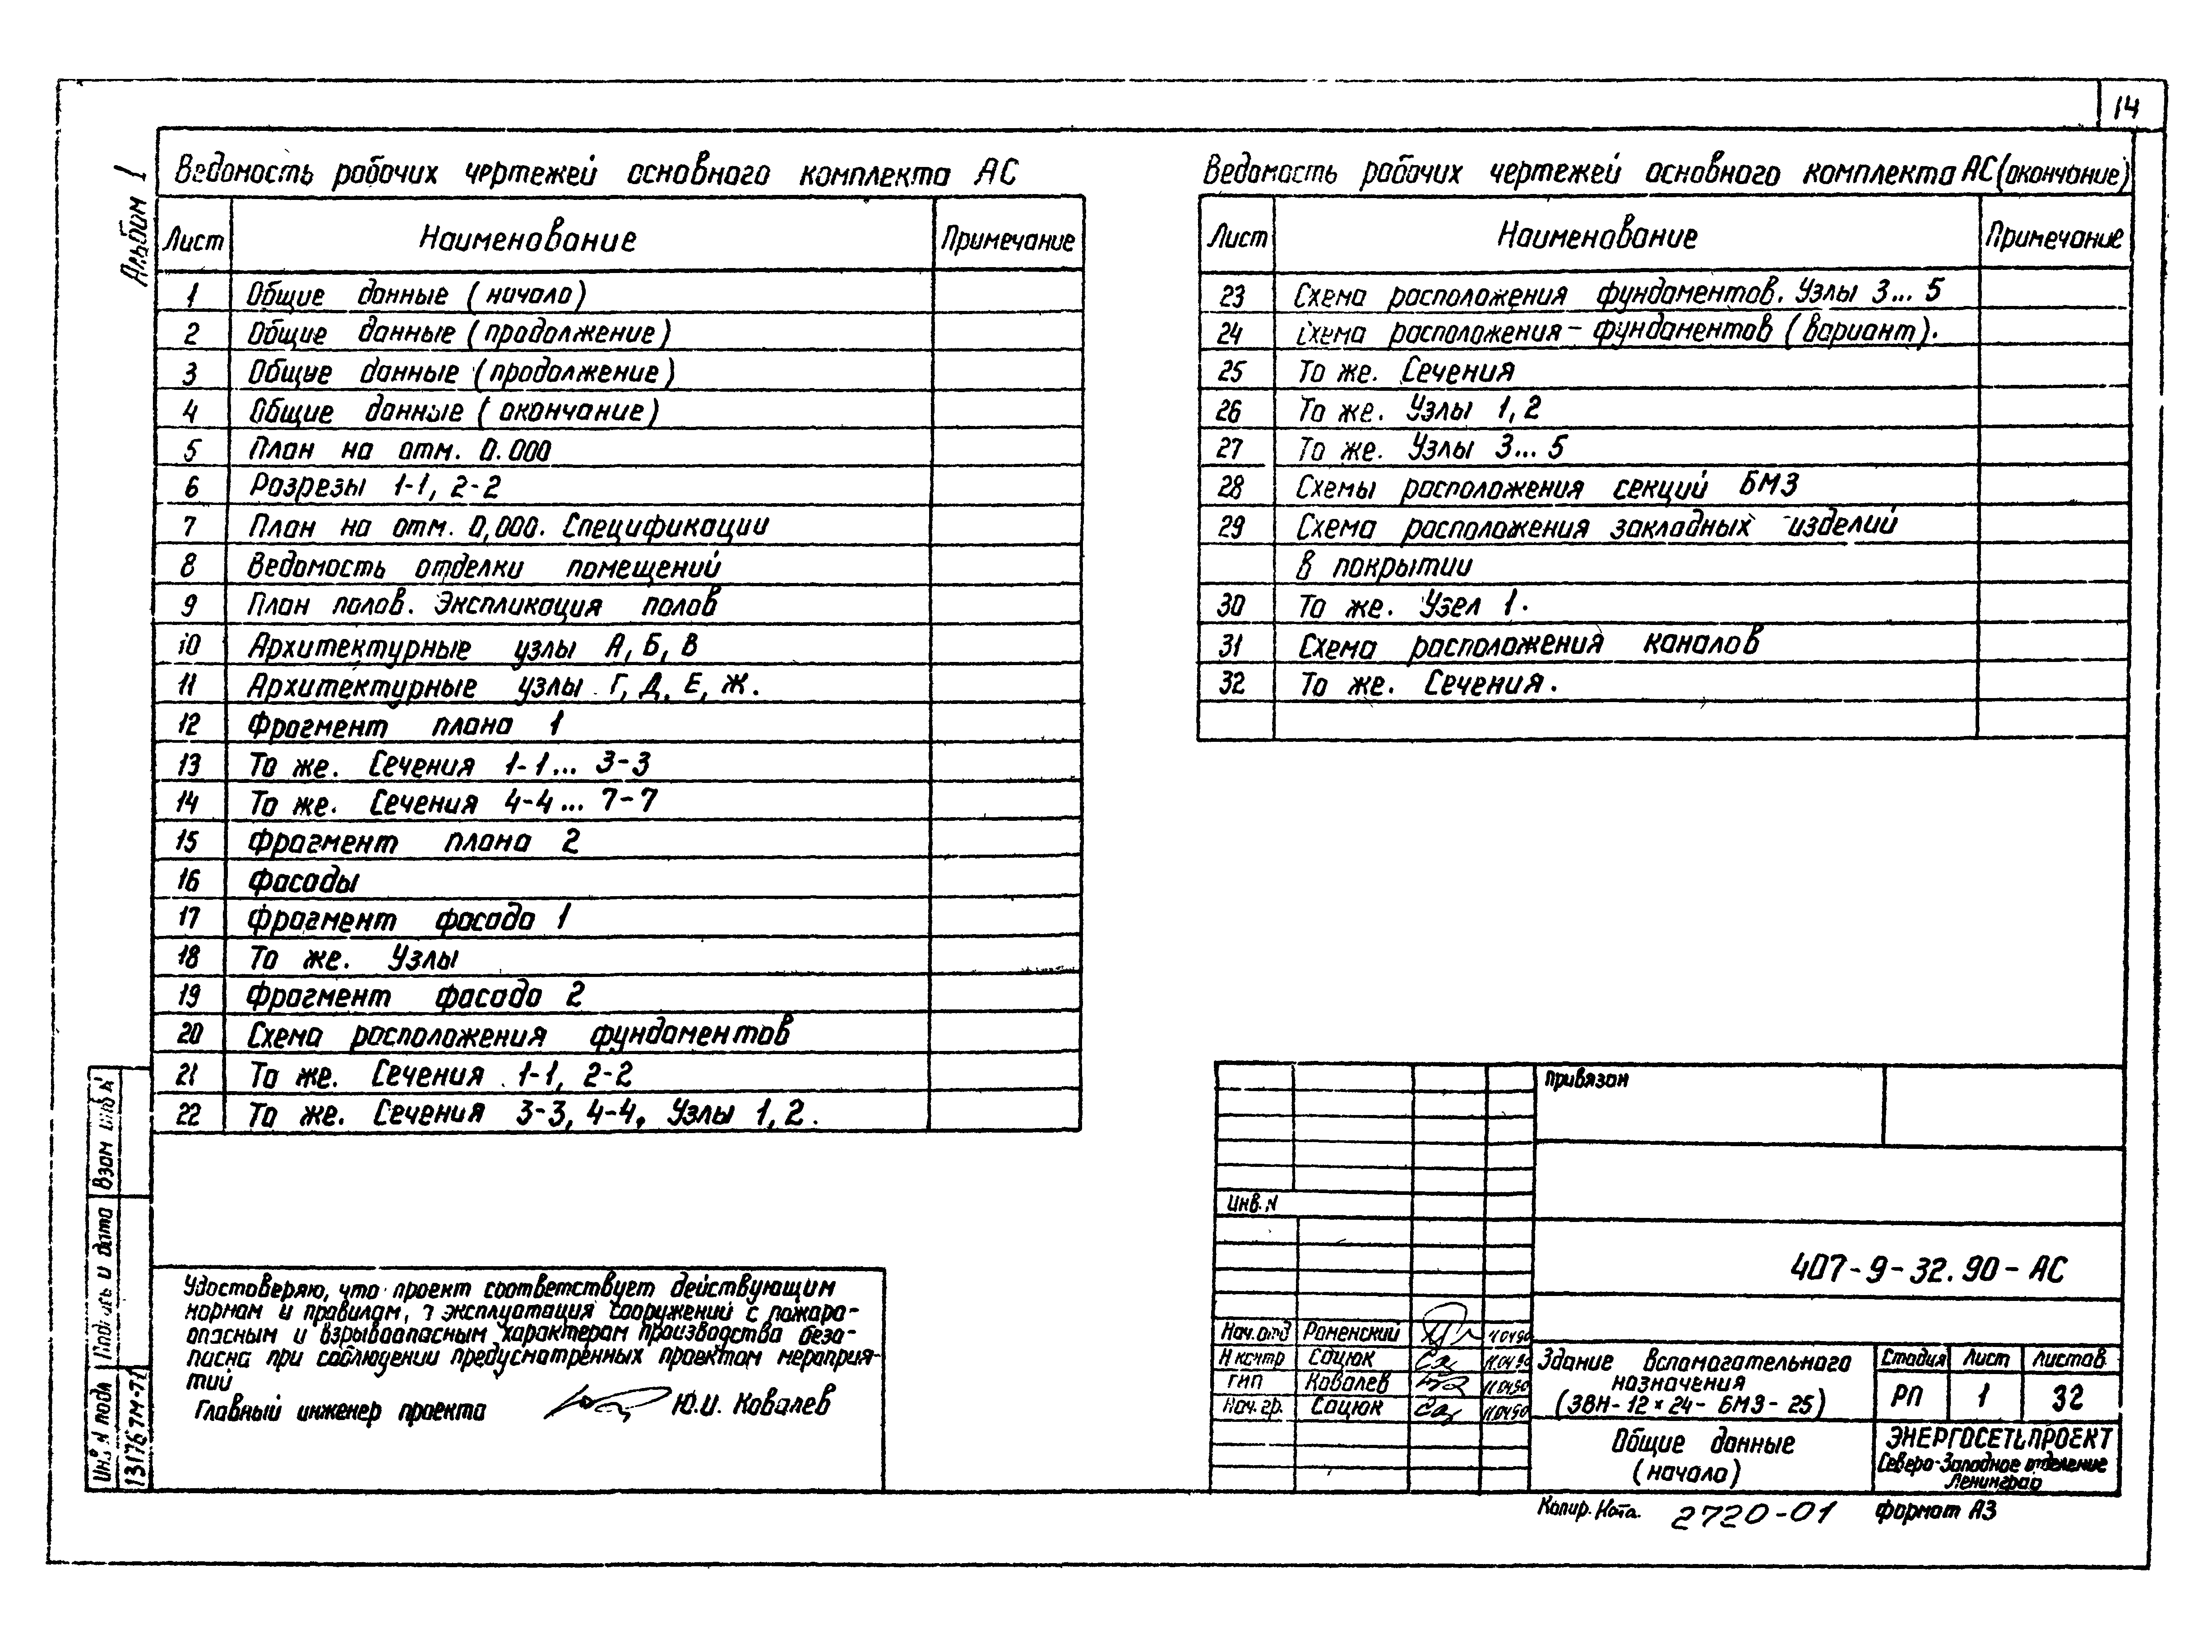 14
Альбом 1
Ведомость рабочих чертежей основного комплекта АС
Лист Наименование Примечание
1 Общие данные (начало)
2 Общие данные (продолжение)
3 Общие данные (продолжение)
4 Общие данные (окончание)
5 План на отм. 0.000
6 Разрезы 1-1, 2-2
7 План на отм. 0,000. Спецификации
8 Ведомость отделки помещений
9 План полов. Экспликация полов
10 Архитектурные узлы А, Б, В
11 Архитектурные узлы Г, Д, Е, Ж.
12 Фрагмент плана 1
13 То же. Сечения 1-1... 3-3
14 То же. Сечения 4-4... 7-7
15 Фрагмент плана 2
16 Фасады
17 Фрагмент фасада 1
18 То же. Узлы
19 Фрагмент фасада 2
20 Схема расположения фундаментов
21 То же. Сечения 1-1, 2-2
22 То же. Сечения 3-3, 4-4, Узлы 1, 2.
Ведомость рабочих чертежей основного комплекта АС (окончание)
Лист Наименование Примечание
23 Схема расположения фундаментов. Узлы 3... 5
24 Схема расположения фундаментов (вариант).
25 То же. Сечения
26 То же. Узлы 1, 2
27 То же. Узлы 3... 5
28 Схемы расположения секций БМЗ
29 Схема расположения закладных изделий
в покрытии
30 То же. Узел 1.
31 Схема расположения каналов
32 То же. Сечения.
Удостоверяю, что проект соответствует действующим
нормам и правилам, эксплуатация сооружений с пожаро-
опасным и взрывоопасным характером производства безо-
пасна при соблюдении предусмотренных проектом мероприя-
тий
Главный инженер проекта Ю.И. Ковалев
Инв. N подл Подпись и дата Взам инв N
13176тм-т1
Привязан
Инв. N
407-9-32.90-АС
Нач. отд Роменский 11.04.90
Н контр Сацюк 11.04.90
ГИП Ковалев 11.04.90
Нач. гр. Сацюк 11.04.90
Здание вспомогательного
назначения
(ЗВН-12×24-БМЗ-25)
Стадия Лист Листов
РП 1 32
Общие данные
(начало)
ЭНЕРГОСЕТЬПРОЕКТ
Северо-Западное отделение
Ленинград
Копир. 2720-01 Формат А3